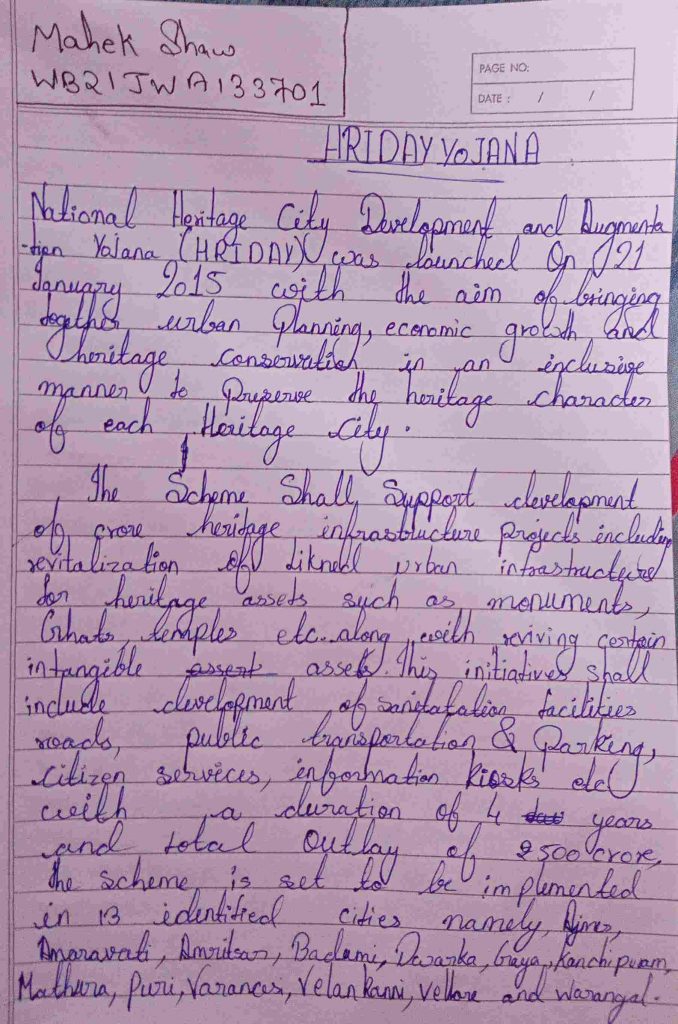 Mahek Shaw
WB21JWA133701
PAGE NO:
DATE : / /
HRIDAY YOJANA
National Heritage City Development and Augmenta
-tion Yojana (HRIDAY) was launched On 21
January 2015 with the aim of bringing
together urban Planning, economic growth and
heritage conservation in an inclusive
manner to Preserve the heritage character
of each Heritage City.
The Scheme Shall Support development
of crore heritage infrastructure Projects including
revitalization of urban infrastructure
for heritage assets such as monuments,
Ghats, temples etc. along with reviving certain
intangible assert assets. This initiatives shall
include development of sanitatation facilities
roads, public transportation & Parking,
Citizen services, information kiosks etc
with a duration of 4 years
and total Outlay of ₹500 crore,
the scheme is set to be implemented
in 13 identified cities namely, Ajmer,
Amaravati, Amritsar, Badami, Dwarka, Gaya, Kanchipuram,
Mathura, Puri, Varanasi, Velankanni, Vellore and Warangal.